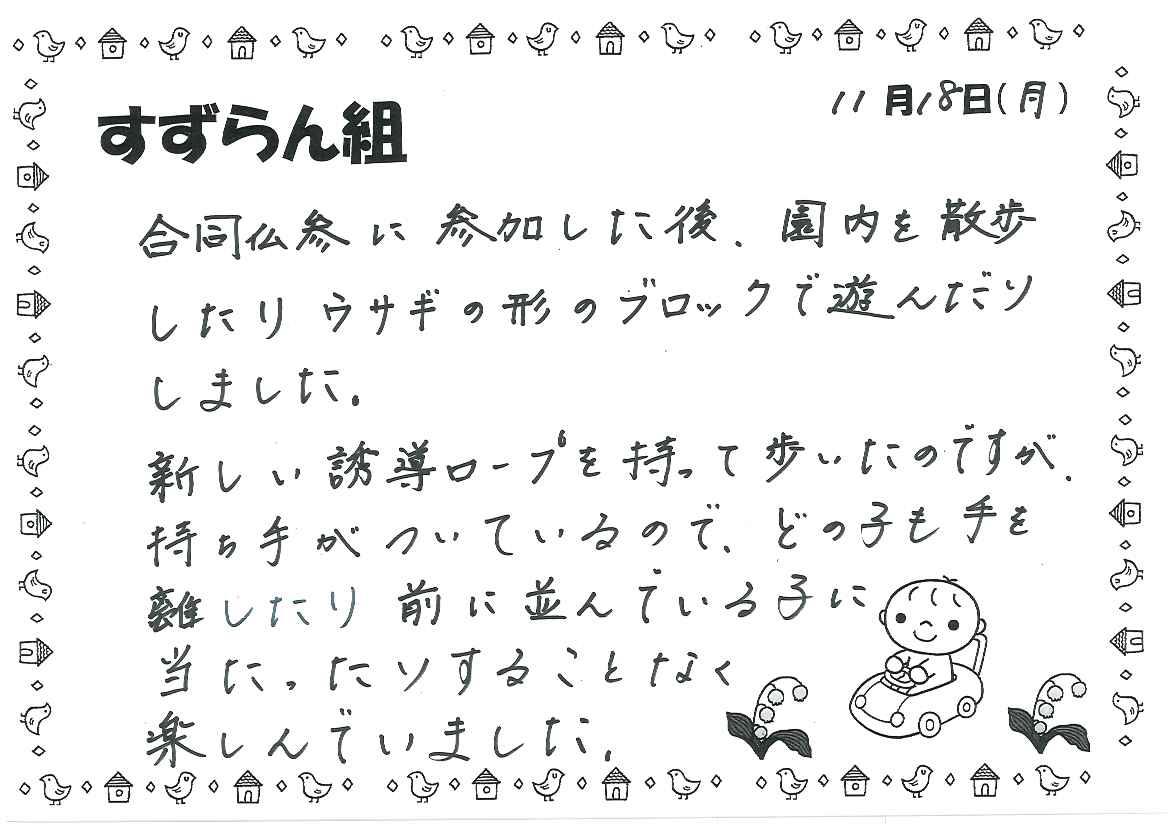 11月18日(月)
すずらん組
合同仏参に参加した後、園内を散歩
したりウサギの形のブロックで遊んだり
しました。
新しい誘導ロープを持って歩いたのですが、
持ち手がついているので、どの子も手を
離したり前に並んでいる子に
当たったりすることなく
楽しんでいました。